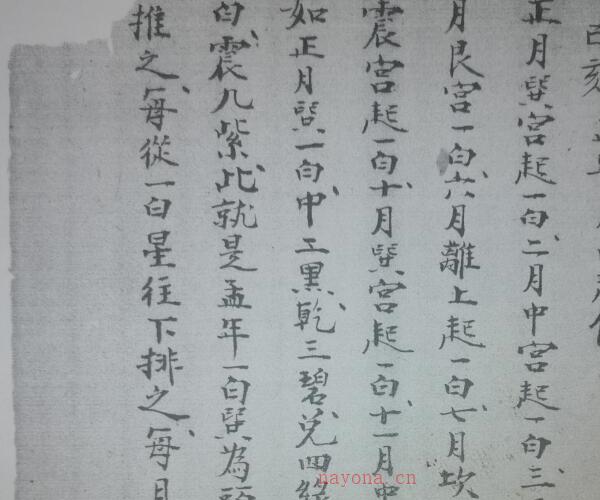 正月巽宮起一白二月中宮起一白三
月艮宮一白六月離上起一白七月坎
震宮起一白十月巽宮起一白十一月中
如正月巽一白中二黑乾三碧兌四綠
白震九紫此就是孟年一白巽為
推之每從一白星往下排之每月
nayona.cn